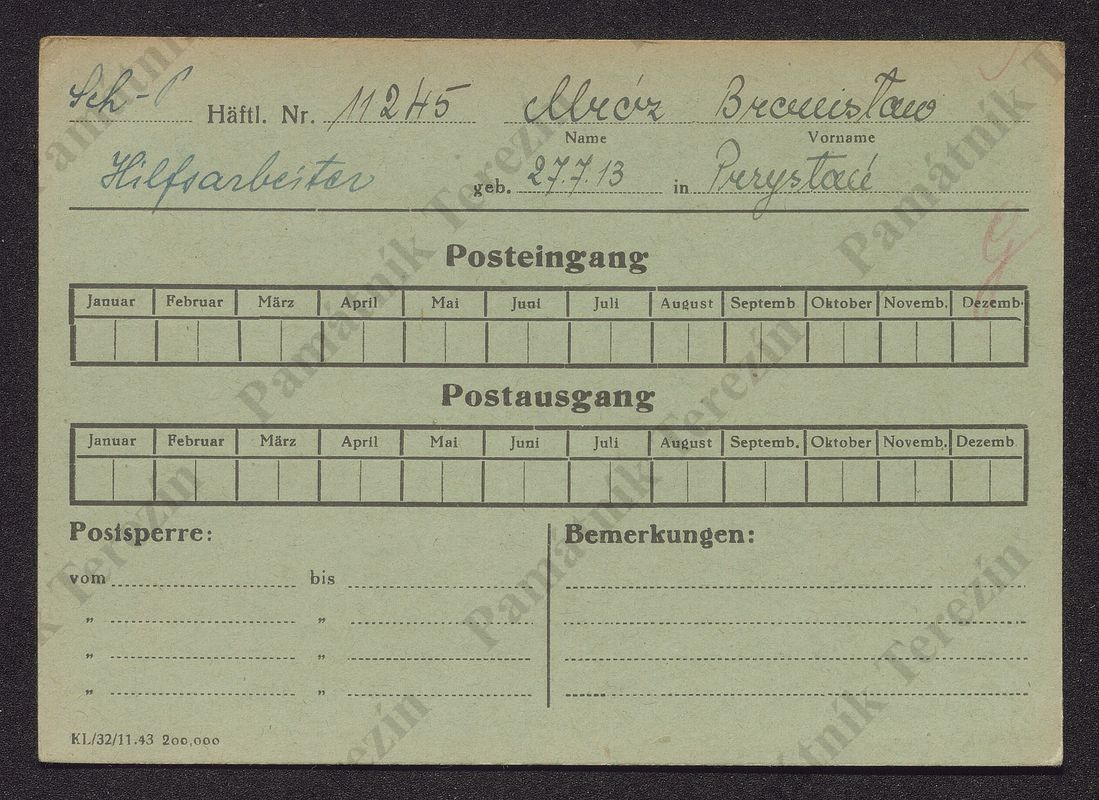 Sch-P Häftl. Nr. 11245 Mróz Bronisław
Name Vorname
Hilfsarbeiter geb. 27.7.13 in Przystań
Posteingang
Januar Februar März April Mai Juni Juli August Septemb. Oktober Novemb. Dezemb.
Postausgang
Januar Februar März April Mai Juni Juli August Septemb. Oktober Novemb. Dezemb.
Postsperre: Bemerkungen:
vom bis
" "
" "
" "
KL/32/11.43 200,000
Památník Terezín